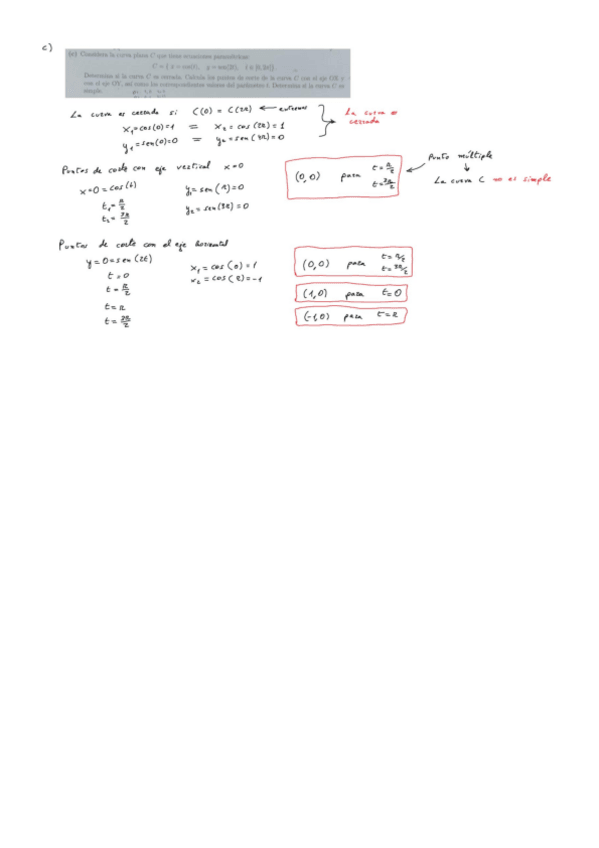 c)
(c) Considera la curva plana C que tiene ecuaciones paramétricas:
C = { x = cos(t), y = sen(2t), t ∈ [0, 2π]}.
Determina si la curva C es cerrada. Calcula los puntos de corte de la curva C con el eje OX y
con el eje OY, así como los correspondientes valores del parámetro t. Determina si la curva C es
simple.
La curva es cerrada si C(0) = C(2π) ← extremos
x₁=cos(0)=1 = x₂ = cos(2π) = 1
y₁=sen(0)=0 = y₂ = sen(4π) = 0
La curva es
cerrada
Puntos de corte con eje vertical x=0
x=0=cos(t)
t₁=π/2
t₂=3π/2
y₁=sen(π)=0
y₂=sen(3π)=0
(0,0) para t=π/2
t=3π/2
Punto múltiple
↓
La curva C no es simple
Puntos de corte con el eje horizontal
y=0=sen(2t)
t=0
t=π/2
t=π
t=3π/2
x₁=cos(0)=1
x₂=cos(π)=-1
(0,0) para t=π/2
t=3π/2
(1,0) para t=0
(-1,0) para t=π